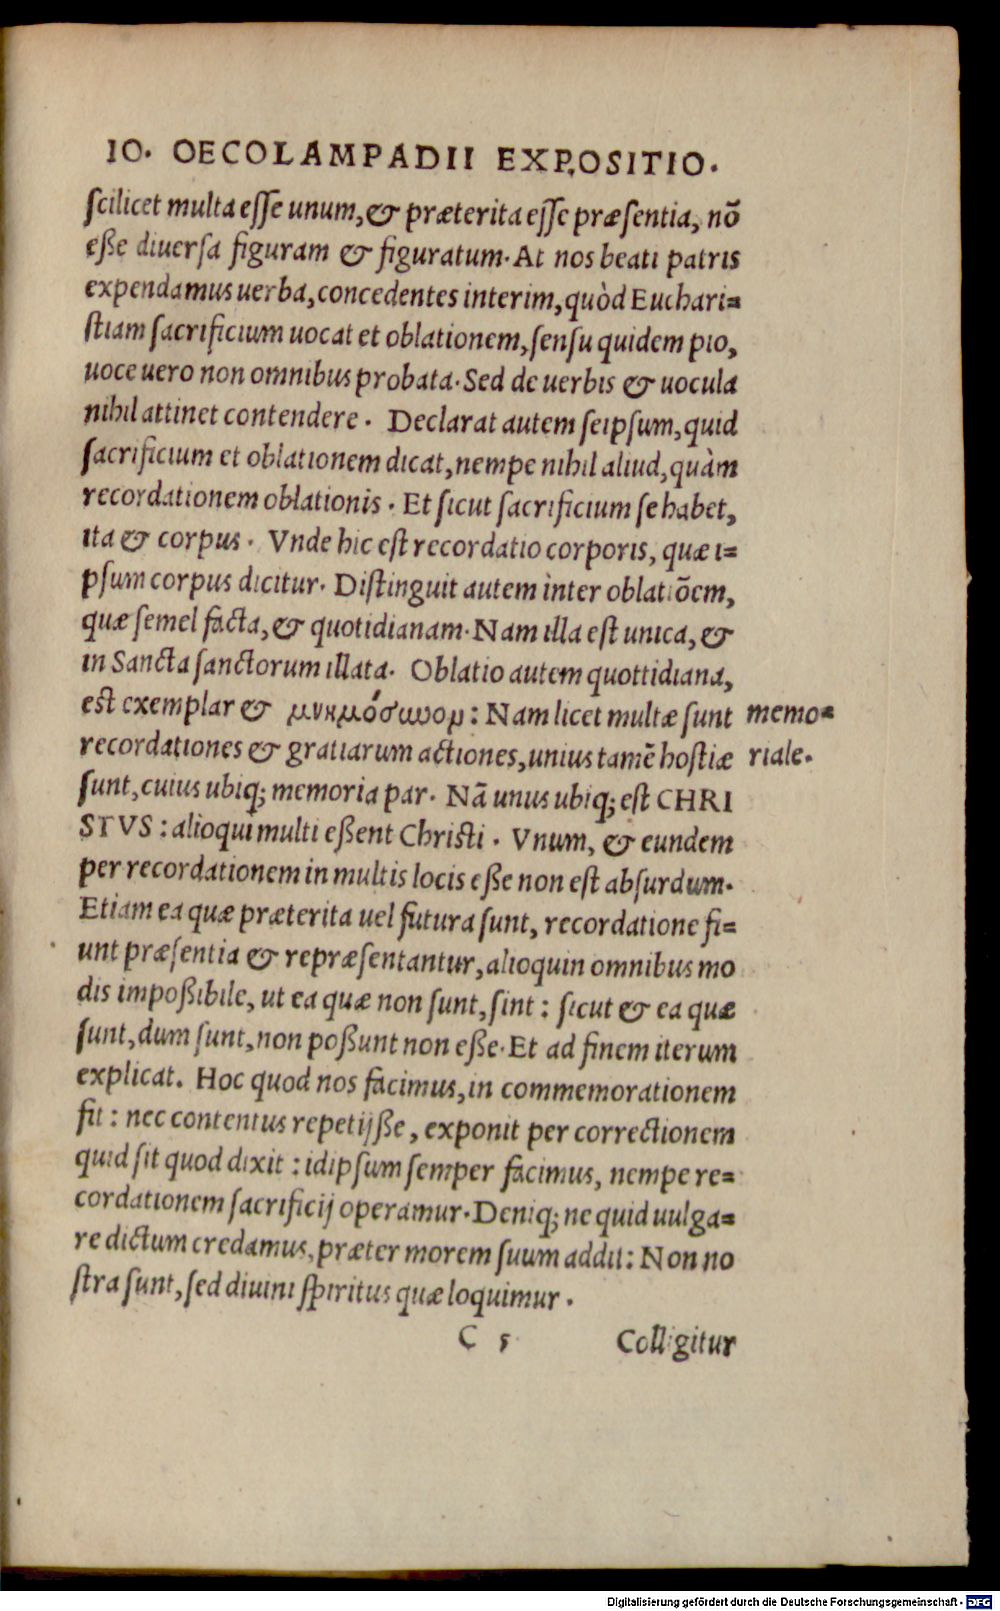 IO. OECOLAMPADII EXPOSITIO.
scilicet multa esse unum, & præterita esse præsentia, nō
eße diuersa figuram & figuratum. At nos beati patris
expendamus uerba, concedentes interim, quòd Euchari=
stiam sacrificium uocat et oblationem, sensu quidem pio,
uoce uero non omnibus probata. Sed de uerbis & uocula
nihil attinet contendere. Declarat autem seipsum, quid
sacrificium et oblationem dicat, nempe nihil aliud, quàm
recordationem oblationis. Et sicut sacrificium se habet,
ita & corpus. Vnde hic est recordatio corporis, quæ i=
psum corpus dicitur. Distinguit autem inter oblatiōem,
quæ semel facta, & quotidianam. Nam illa est unica, &
in Sancta sanctorum illata. Oblatio autem quottidiana,
est exemplar & μνημόσυνον: Nam licet multæ sunt memo=
recordationes & gratiarum actiones, unius tamē hostiæ riale.
sunt, cuius ubiq; memoria par. Nā unus ubiq; est CHRI
STVS: alioqui multi eßent Christi. Vnum, & eundem
per recordationem in multis locis eße non est absurdum.
Etiam ea quæ præterita uel futura sunt, recordatione fi=
unt præsentia & repræsentantur, alioquin omnibus mo
dis impoßibile, ut ea quæ non sunt, sint: sicut & ea quæ
sunt, dum sunt, non poßunt non eße. Et ad finem iterum
explicat. Hoc quod nos facimus, in commemorationem
fit: nec contentus repetijße, exponit per correctionem
quid sit quod dixit: idipsum semper facimus, nempe re=
cordationem sacrificij operamur. Deniq; ne quid uulga=
re dictum credamus, præter morem suum addit: Non no
stra sunt, sed diuini spiritus quæ loquimur.
C 5 Colligitur
Digitalisierung gefördert durch die Deutsche Forschungsgemeinschaft - DFG